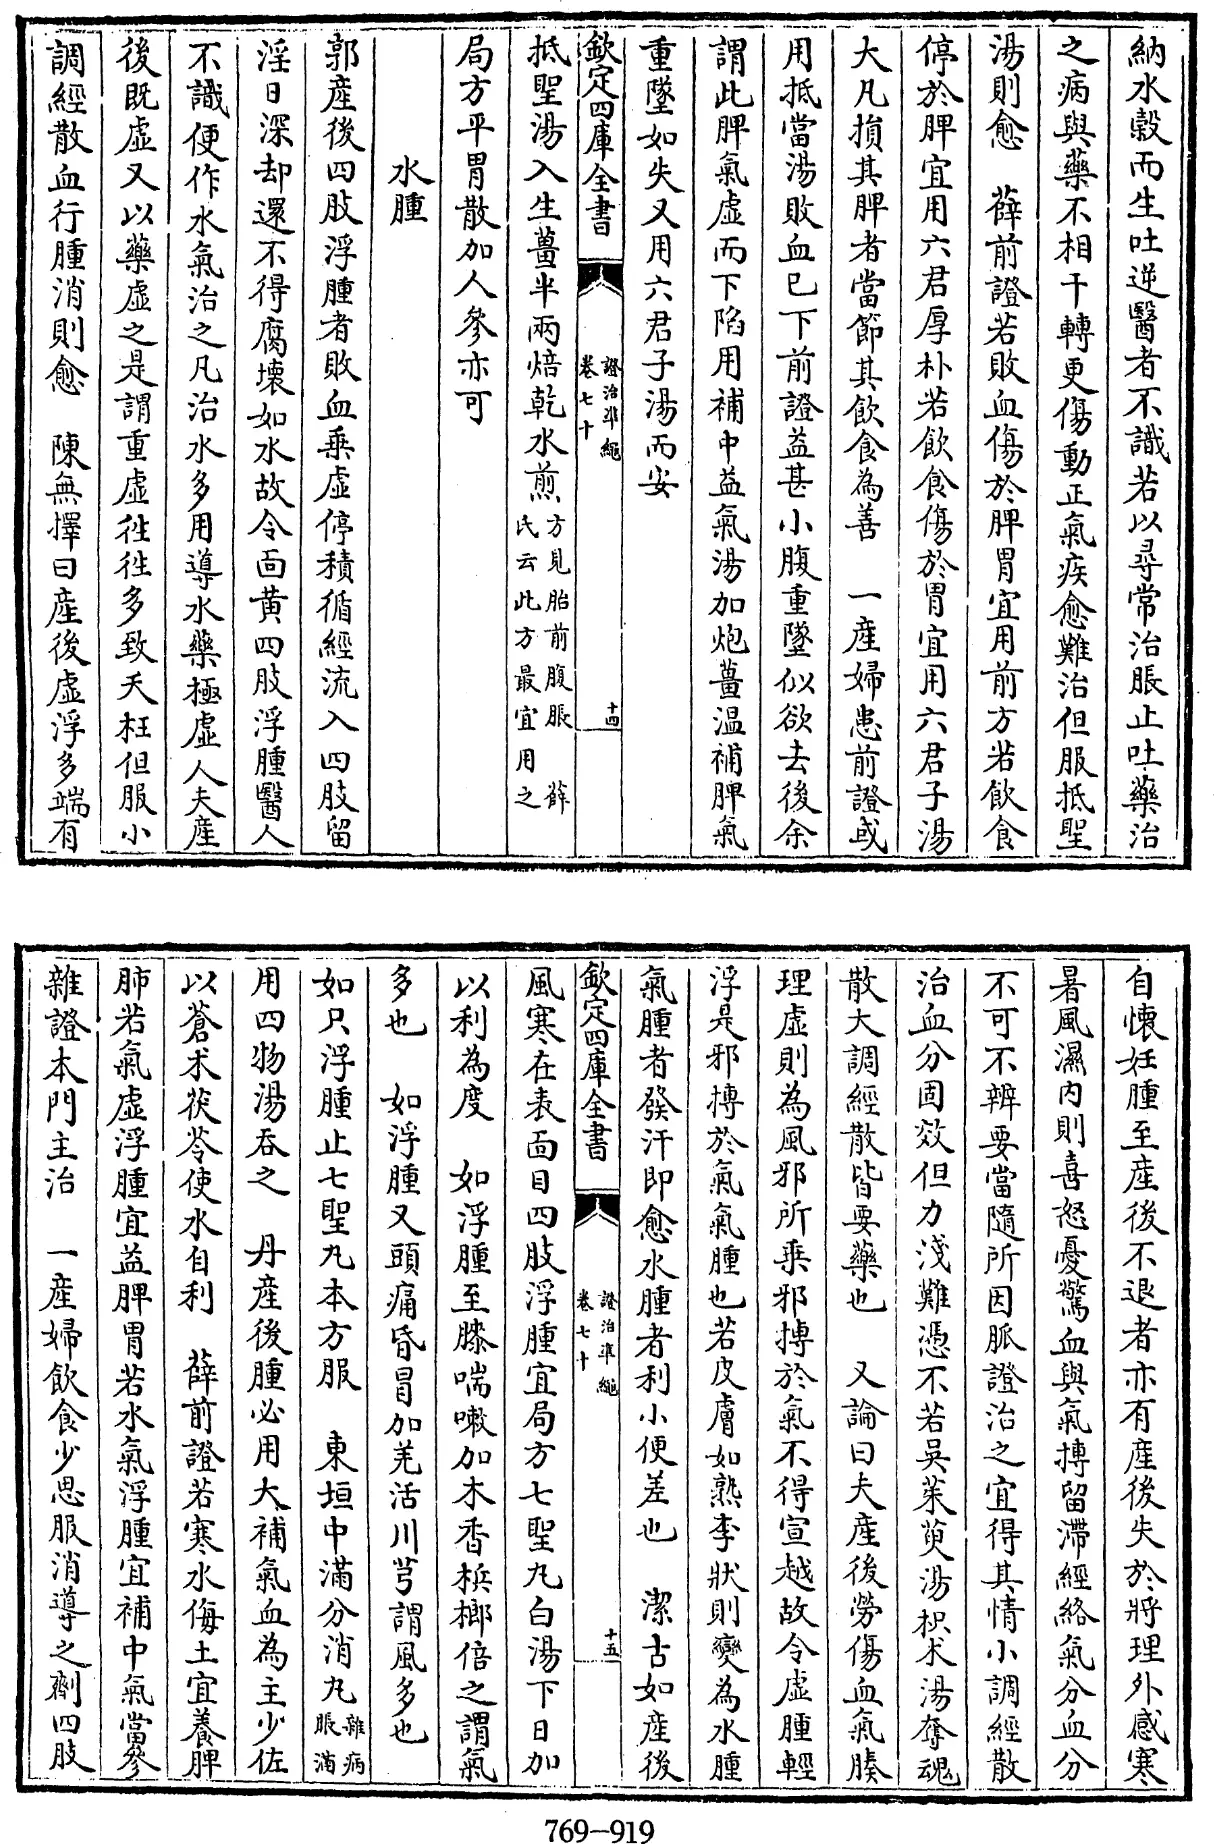 納水穀而生吐逆醫者不識若以尋常治脹止吐藥治
之病與藥不相干轉更傷動正氣疾愈難治但服抵聖
湯則愈　薛前證若敗血傷於脾胃宜用前方若飲食
停於脾宜用六君厚朴若飲食傷於胃宜用六君子湯
大凡損其脾者當節其飲食為善　一產婦患前證或
用抵當湯敗血已下前證益甚小腹重墜似欲去後余
謂此脾氣虛而下陷用補中益氣湯加炮薑温補脾氣
重墜如失又用六君子湯而安
欽定四庫全書
證治準繩
卷七十
十四
抵聖湯入生薑半兩焙乾水煎方見胎前腹脹　薛
氏云此方最宜用之
局方平胃散加人參亦可
水腫
郭產後四肢浮腫者敗血乘虛停積循經流入四肢留
淫日深却還不得腐壞如水故令面黃四肢浮腫醫人
不識便作水氣治之凡治水多用導水藥極虛人夫產
後既虛又以藥虛之是謂重虛往往多致夭枉但服小
調經散血行腫消則愈　陳無擇曰產後虛浮多端有
自懷妊腫至產後不退者亦有產後失於將理外感寒
暑風濕内則喜怒憂驚血與氣搏留滯經絡氣分血分
不可不辨要當隨所因脈證治之宜得其情小調經散
治血分固效但力淺難憑不若吳茱萸湯枳朮湯奪魂
散大調經散皆要藥也　又論曰夫產後勞傷血氣腠
理虛則為風邪所乘邪搏於氣不得宣越故令虛腫輕
浮是邪搏於氣氣腫也若皮膚如熟李狀則變為水腫
氣腫者發汗即愈水腫者利小便差也　潔古如產後
欽定四庫全書
證治準繩
卷七十
十五
風寒在表面目四肢浮腫宜局方七聖丸白湯下日加
以利為度　如浮腫至膝喘嗽加木香檳榔倍之謂氣
多也　如浮腫又頭痛昏冒加羌活川芎謂風多也
如只浮腫止七聖丸本方服　東垣中滿分消丸雜病
脹滿
用四物湯吞之　丹產後腫必用大補氣血為主少佐
以蒼朮茯苓使水自利　薛前證若寒水侮土宜養脾
肺若氣虛浮腫宜益脾胃若水氣浮腫宜補中氣當參
雜證本門主治　一產婦飲食少思服消導之劑四肢
769-919